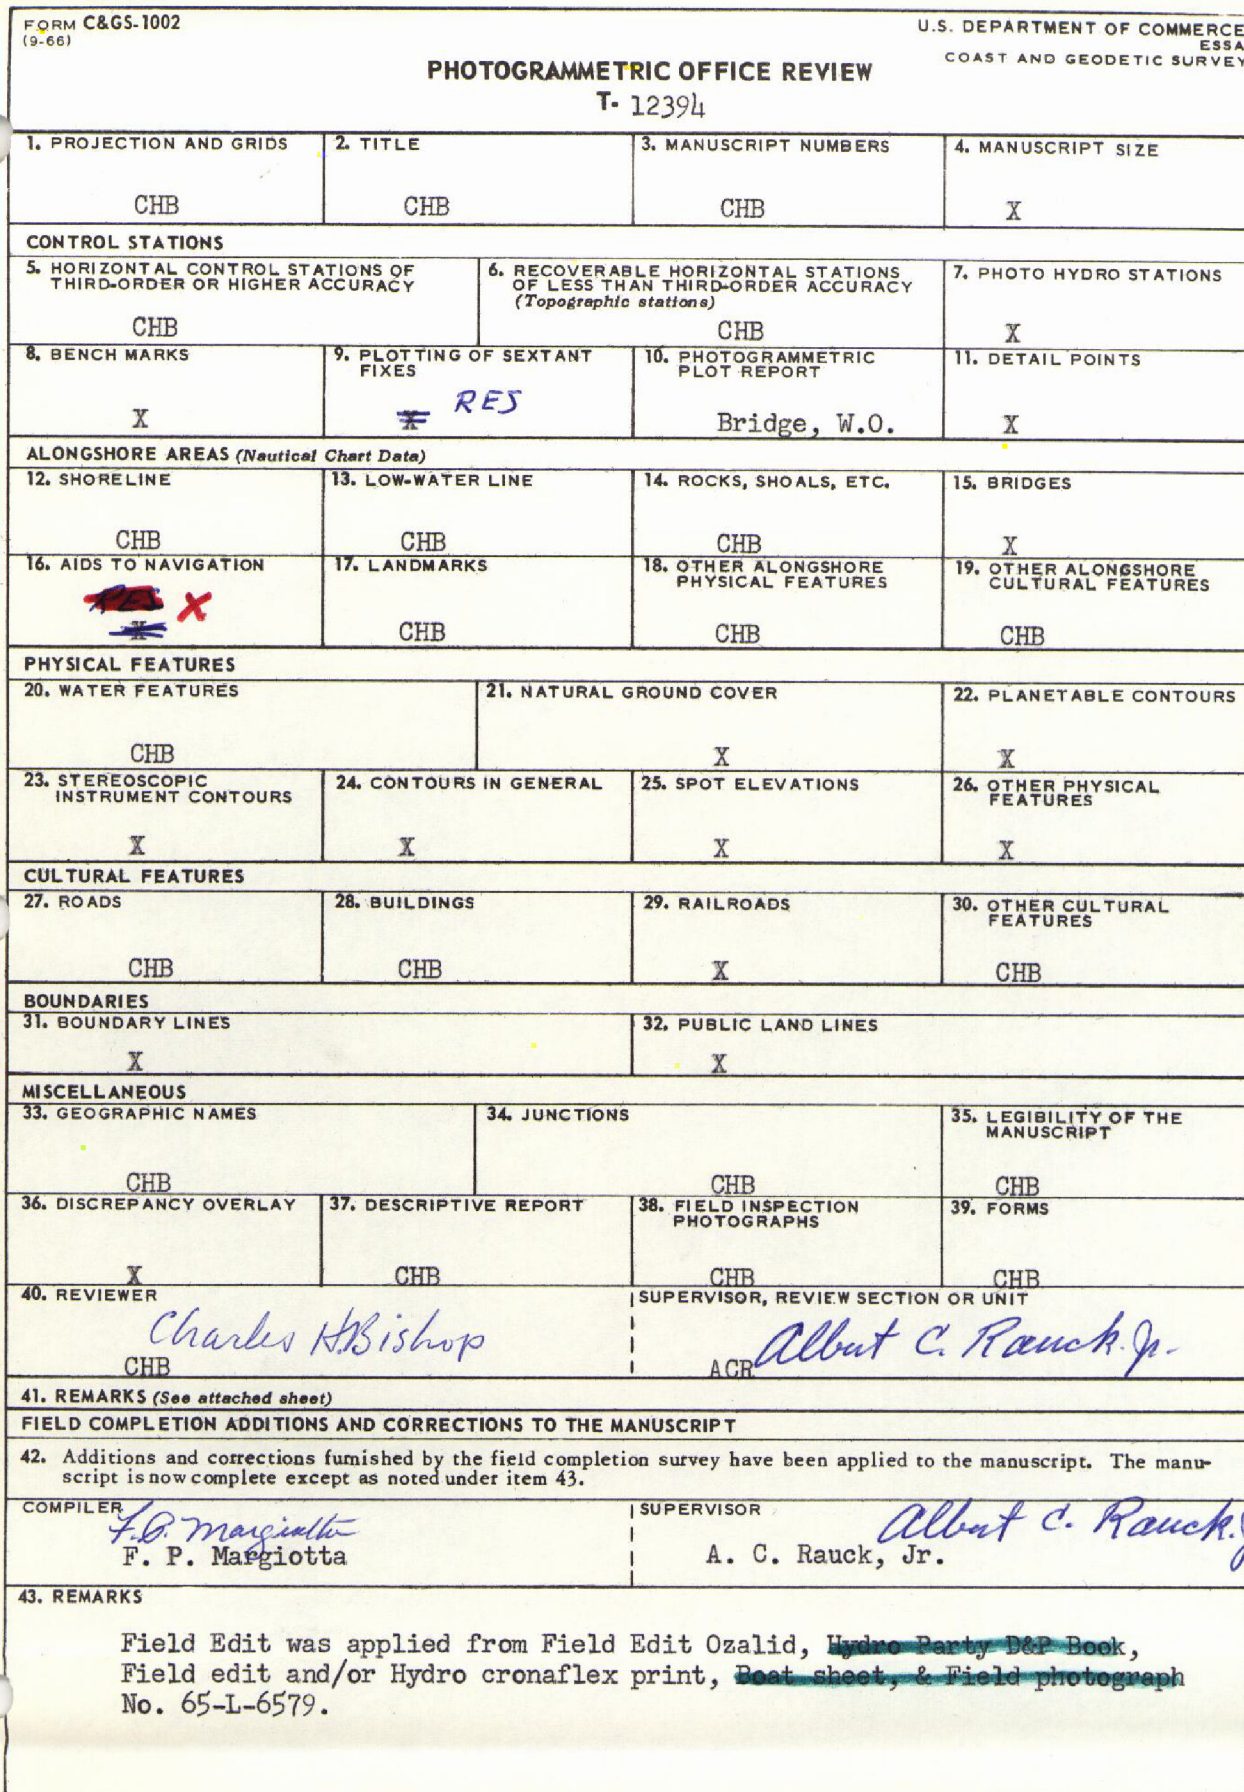 FORM C&GS-1002
(9-66)
U.S. DEPARTMENT OF COMMERCE
ESSA
COAST AND GEODETIC SURVEY
PHOTOGRAMMETRIC OFFICE REVIEW
T- 12394
1. PROJECTION AND GRIDS
CHB
2. TITLE
CHB
3. MANUSCRIPT NUMBERS
CHB
4. MANUSCRIPT SIZE
X
CONTROL STATIONS
5. HORIZONTAL CONTROL STATIONS OF
THIRD-ORDER OR HIGHER ACCURACY
CHB
6. RECOVERABLE HORIZONTAL STATIONS
OF LESS THAN THIRD-ORDER ACCURACY
(Topographic stations)
CHB
7. PHOTO HYDRO STATIONS
X
8. BENCH MARKS
X
9. PLOTTING OF SEXTANT
FIXES
X RES
10. PHOTOGRAMMETRIC
PLOT REPORT
Bridge, W.O.
11. DETAIL POINTS
X
ALONGSHORE AREAS (Nautical Chart Data)
12. SHORELINE
CHB
13. LOW-WATER LINE
CHB
14. ROCKS, SHOALS, ETC.
CHB
15. BRIDGES
X
16. AIDS TO NAVIGATION
RES X
X
17. LANDMARKS
CHB
18. OTHER ALONGSHORE
PHYSICAL FEATURES
CHB
19. OTHER ALONGSHORE
CULTURAL FEATURES
CHB
PHYSICAL FEATURES
20. WATER FEATURES
CHB
21. NATURAL GROUND COVER
X
22. PLANETABLE CONTOURS
X
23. STEREOSCOPIC
INSTRUMENT CONTOURS
X
24. CONTOURS IN GENERAL
X
25. SPOT ELEVATIONS
X
26. OTHER PHYSICAL
FEATURES
X
CULTURAL FEATURES
27. ROADS
CHB
28. BUILDINGS
CHB
29. RAILROADS
X
30. OTHER CULTURAL
FEATURES
CHB
BOUNDARIES
31. BOUNDARY LINES
X
32. PUBLIC LAND LINES
X
MISCELLANEOUS
33. GEOGRAPHIC NAMES
CHB
34. JUNCTIONS
CHB
35. LEGIBILITY OF THE
MANUSCRIPT
CHB
36. DISCREPANCY OVERLAY
X
37. DESCRIPTIVE REPORT
CHB
38. FIELD INSPECTION
PHOTOGRAPHS
CHB
39. FORMS
CHB
40. REVIEWER
Charles H. Bishop
CHB
SUPERVISOR, REVIEW SECTION OR UNIT
Albert C. Rauck. Jr.
ACR
41. REMARKS (See attached sheet)
FIELD COMPLETION ADDITIONS AND CORRECTIONS TO THE MANUSCRIPT
42. Additions and corrections furnished by the field completion survey have been applied to the manuscript. The manu-
script is now complete except as noted under item 43.
COMPILER
F. P. Margiotta
F. P. Margiotta
SUPERVISOR
Albert C. Rauck. J
A. C. Rauck, Jr.
43. REMARKS
Field Edit was applied from Field Edit Ozalid, Hydro Party D&P Book,
Field edit and/or Hydro cronaflex print, Boat sheet, & Field photograph
No. 65-L-6579.